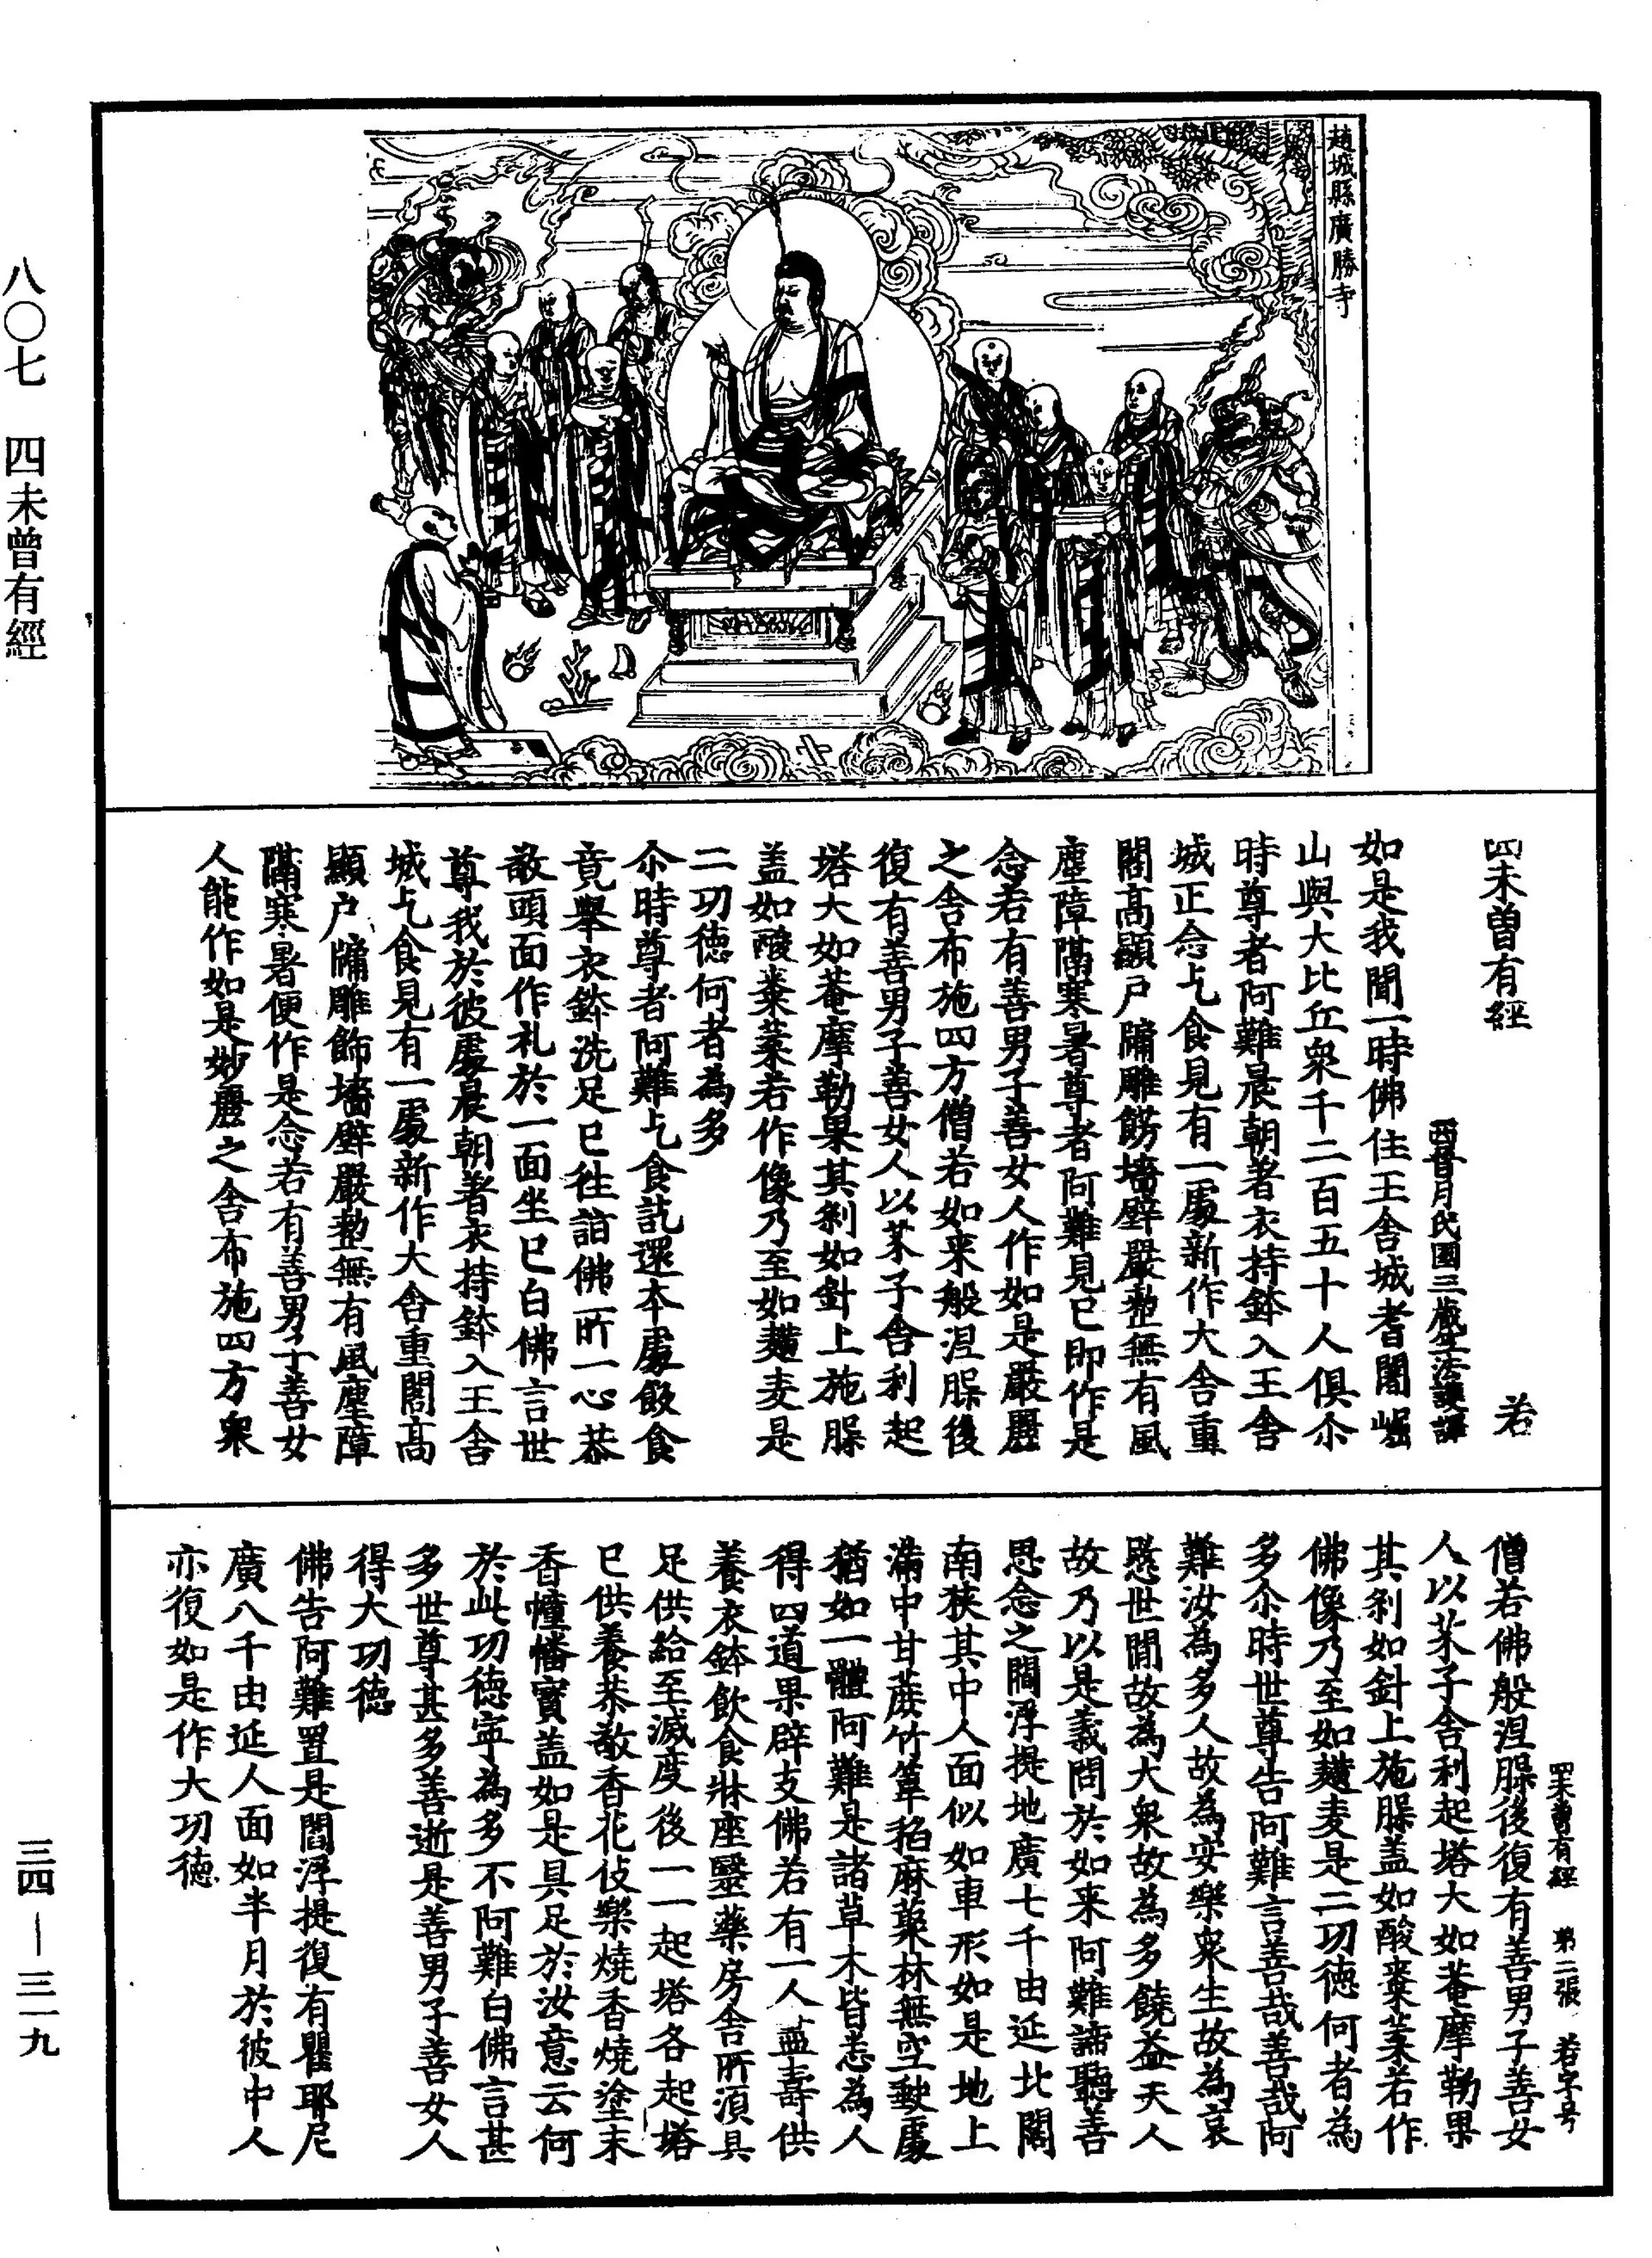 八〇七　四未曾有經
趙城縣廣勝寺
四未曾有經　若
西晉月氏國三藏竺法護譯
如是我聞一時佛住王舍城耆闍崛
山與大比丘衆千二百五十人俱尒
時尊者阿難晨朝著衣持鉢入王舍
城正念乞食見有一處新作大舍重
閣高顯户牖雕餝墻壁嚴整無有風
塵障隔寒暑尊者阿難見已即作是
念若有善男子善女人作如是嚴麗
之舍布施四方僧若如来般涅槃後
復有善男子善女人以芥子舍利起
塔大如菴摩勒果其刹如針上施槃
盖如酸棗葉若作像乃至如麵麦是
二功德何者為多
尒時尊者阿難乞食訖還本處飯食
竟舉衣鉢洗足已往詣佛所一心恭
敬頭面作礼於一面坐已白佛言世
尊我於彼處晨朝著衣持鉢入王舍
城乞食見有一處新作大舍重閣高
顯户牖雕飾墻壁嚴整無有風塵障
隔寒暑便作是念若有善男子善女
人能作如是妙麗之舍布施四方衆
四未曾有經　第二張　若字号
僧若佛般涅槃後復有善男子善女
人以芥子舍利起塔大如菴摩勒果
其刹如針上施槃盖如酸棗葉若作
佛像乃至如麵麦是二功德何者為
多尒時世尊告阿難言善哉善哉阿
難汝為多人故為安樂衆生故為哀
愍世間故為大衆故為多饒益天人
故乃以是義問於如来阿難諦聽善
思念之閻浮提地廣七千由延北闊
南狹其中人面似如車形如是地上
滿中甘蔗竹葦稻麻藂林無空缺處
猶如一體阿難是諸草木皆悉為人
得四道果辟支佛若有一人盡壽供
養衣鉢飲食牀座醫藥房舍所須具
足供給至滅度後一一起塔各起塔
已供養恭敬香花伎樂燒香塗末
香幢幡寶盖如是具足於汝意云何
於此功德寧為多不阿難白佛言甚
多世尊甚多善逝是善男子善女人
得大功德
佛告阿難置是閻浮提復有瞿耶尼
廣八千由延人面如半月於彼中人
亦復如是作大功德
三四—三一九